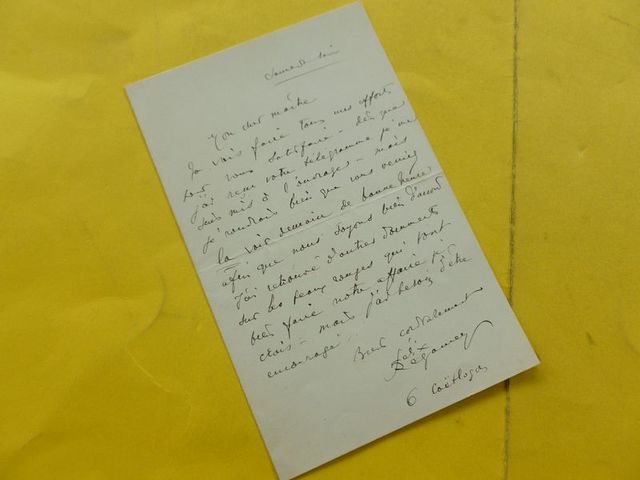 Samedi soir
Mon cher maître
Je vais faire tous mes efforts
pour vous satisfaire - dès que
j'ai reçu votre télégramme je me
suis mis à l'ouvrage - mais
je voudrais bien que vous veniez
la voir demain de bonne heure
afin que nous soyons bien d'accord
J'ai retrouvé d'autres documents
sur les peaux rouges qui font
bien faire notre affaire je
crois - mais j'ai besoin d'être
encouragé.
Bien cordialement
Félix
Régamey
6 Coëtlogon